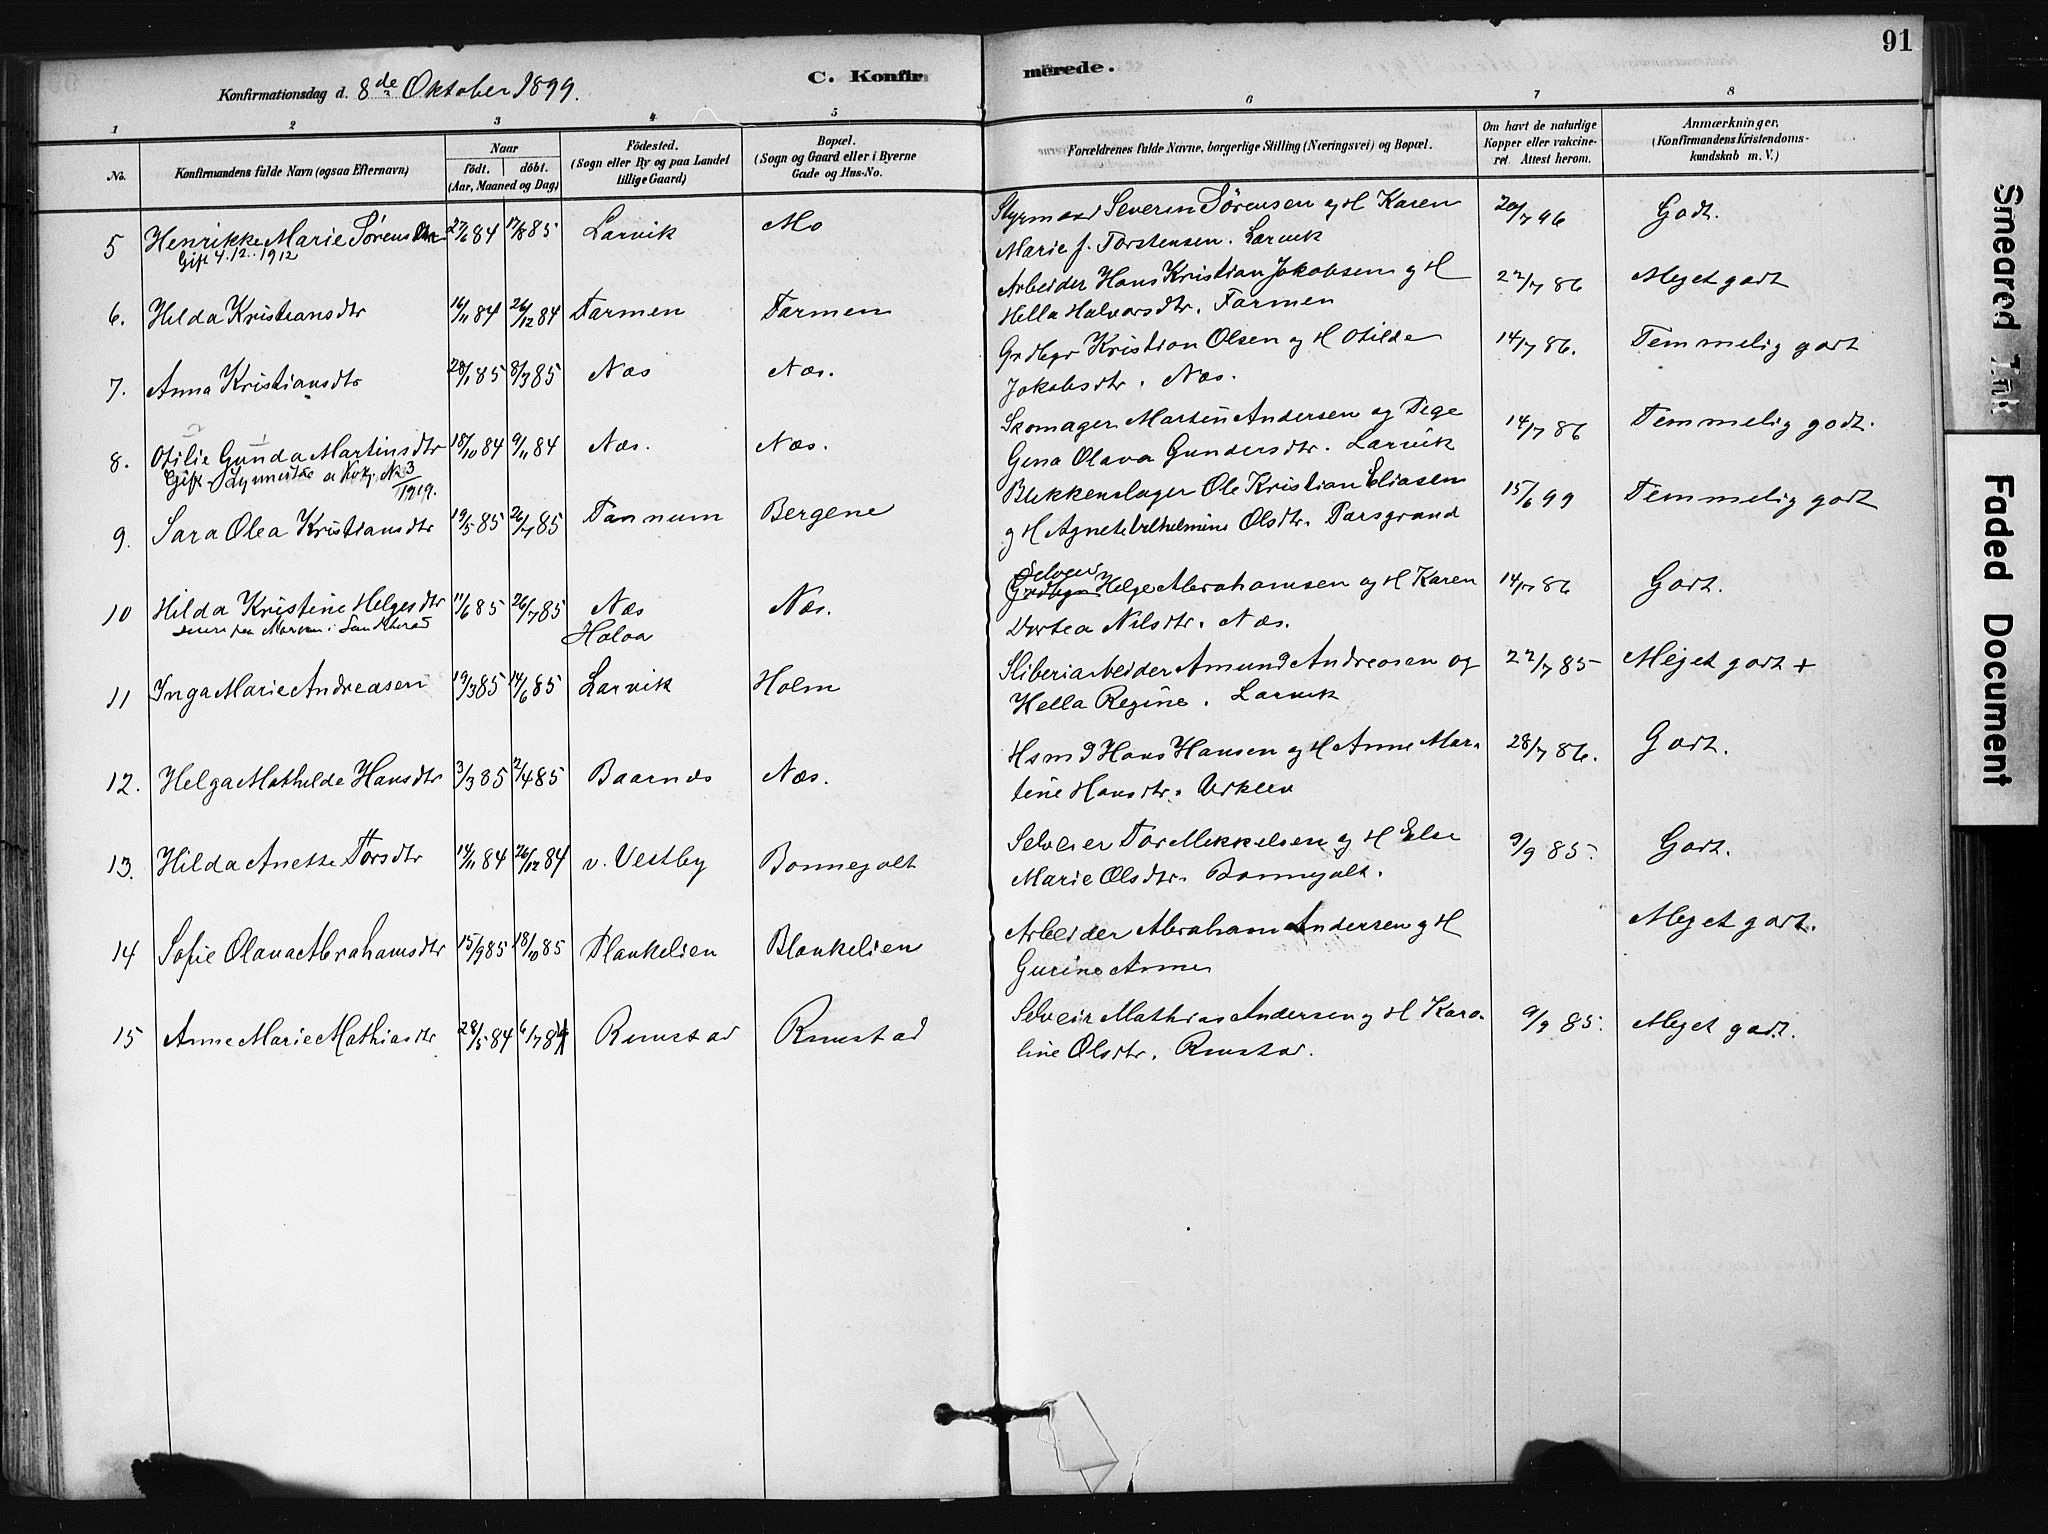 91
C. Konfirmerede.
Konfirmationsdag d. 8de Oktober 1899.
1 2 3 4 5 6 7 8
No.
Konfirmandens fulde Navn (ogsaa Efternavn)
Naar
födt. döbt.
(Aar, Maaned og Dag)
Födested.
(Sogn eller By og paa Landet
tillige Gaard)
Bopæl.
(Sogn og Gaard eller i Byerne
Gade og Hus-No.
Forældrenes fulde Navne, borgerlige Stilling (Næringsvei) og Bopæl.
Om havt de naturlige
Kopper eller vakcine-
ret. Attest herom.
Anmærkninger,
(Konfirmandens Kristendoms-
kundskab m. V.)
5 Henrikke Marie Sørens 27/6 84 17/8 85 Larvik Mo Styrmand Severin Sørensen og H Karen 20/7 96 Godt.
Gift 4.12.1912 Marie f. Torstensen. Larvik
6. Hilda Kristiansdtr 16/11 84 26/12 84 Farmen Farmen Arbeider Hans Kristian Jakobsen og H 22/7 86 Meget godt
Hella Halvorsdtr. Farmen
7. Anna Kristiansdtr 28/1 85 8/3 85 Næs Næs. Grdbgr Kristian Olsen og H Otilde 14/7 86. Temmelig godt
Jakobsdtr. Næs.
8. Otilie Gunda Martinsdtr 18/10 84 9/11 84 Næs. Næs. Skomager Martin Andersen og Pige 14/7 86 Temmelig godt.
Gift 3/1919. Gina Olava Gundersdtr. Larvik
9. Sara Olea Kristiansdtr 19/5 85 26/7 85 Tannum Bergene Blikkenslager Ole Kristian Eliasen 15/6 99 Temmelig godt
og H Agnete Vilhelmine Olsdtr. Porsgrund
10 Hilda Kristine Helgesdtr 11/6 85 26/7 85 Næs Holoa Næs. Selveier Helge Abrahamsen og H Karen 14/7 86 Godt.
Dortea Nilsdtr. Næs.
11 Inga Marie Andreasen 19/3 85 14/6 85 Larvik Holm Sliberiarbeider Amund Andreasen og 22/7 85 Meget godt +
Hella Regine. Larvik
12. Helga Mathilde Hansdtr 3/3 85 2/4 85 Baarnes Næs. Hsmd Hans Hansen og H Anne Mar- 28/7 86. Godt.
tine Hansdtr.
13. Hilda Anette Torsdtr 14/11 84 26/12 84 v. Vestby Bonnegolt Selveier Tor Mikkelsen og H Else 9/9 85. Godt.
Marie Olsdtr. Bonnegolt.
14 Sofie Olava Abrahamsdtr 15/9 85 18/10 85 Plankelien Blankelien Arbeider Abraham Andersen og H Meget godt.
Gurine Anne
15 Anne Marie Mathiasdtr 28/5 84 6/7 84 Rimstad Rimstad Selveier Mathias Andersen og H Karo- 9/9 85. Meget godt.
line Olsdtr. Rimstad.
Smeared Ink
Faded Document